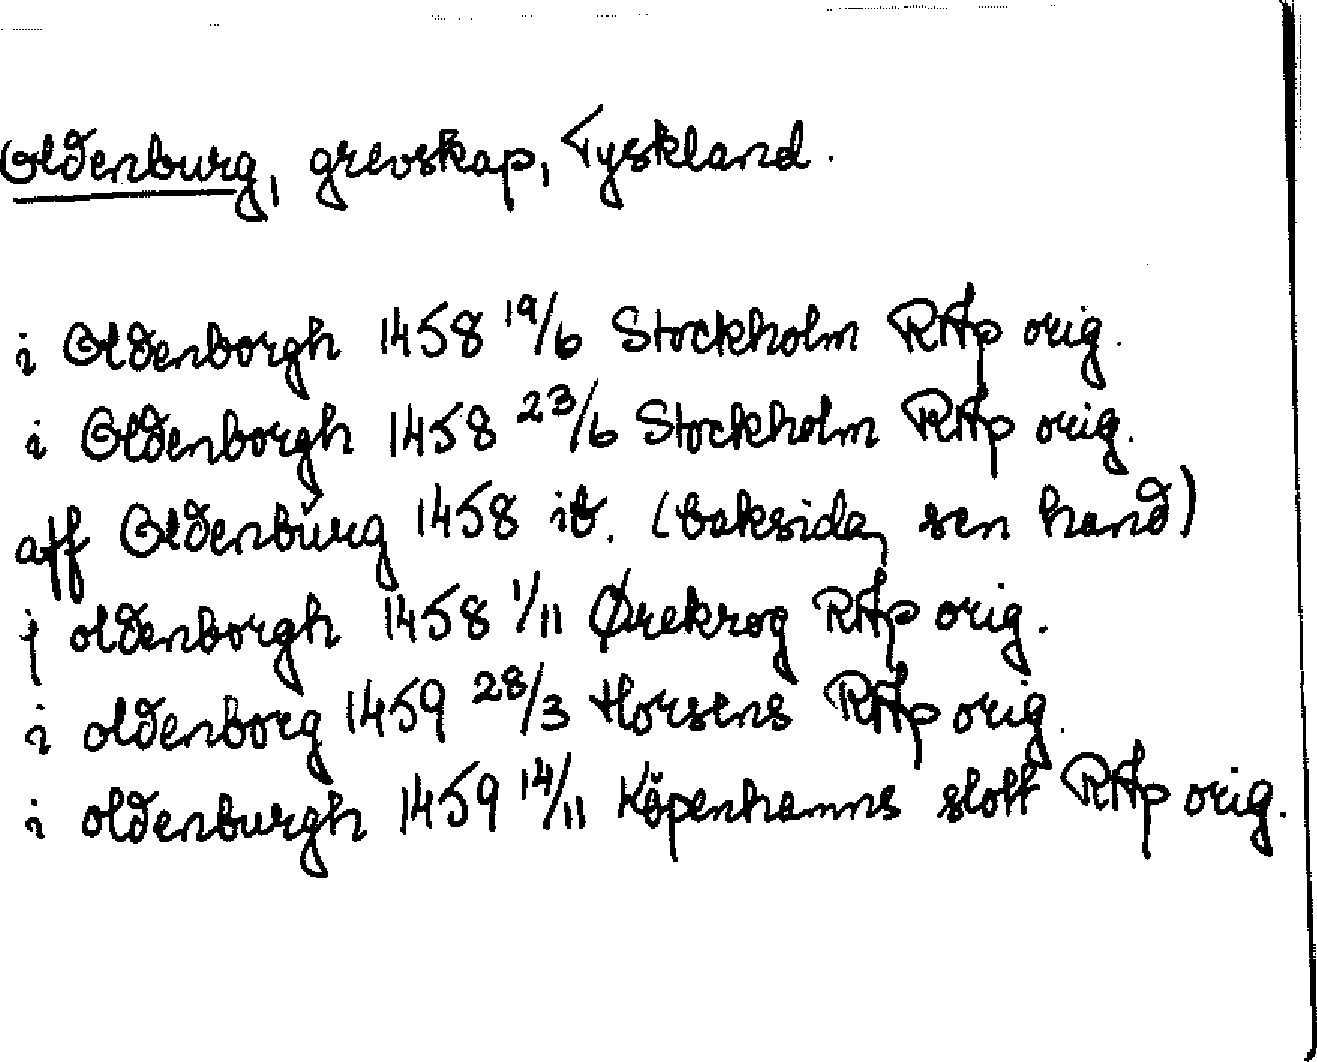 Oldenburg, grevskap, Tyskland.
i Oldenborgh 1458 19/6 Stockholm RAp orig.
i Oldenborgh 1458 23/6 Stockholm RAp orig.
aff Oldenbúrg 1458 ib. (baksida, sen hand)
j oldenborgh 1458 1/11 Ørekrog RAp orig.
i oldenborg 1459 28/3 Horsens RAp orig.
i oldenburgh 1459 14/11 Köpenhamns slott RAp orig.